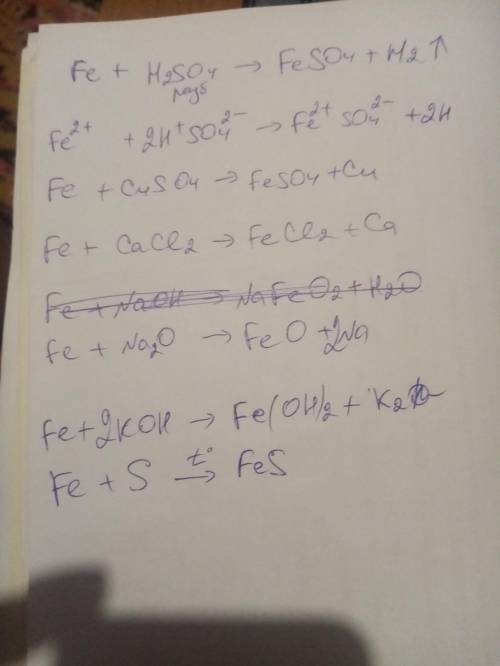 Fe + H2SO4 → FeSO4 + H2↑
разб
Fe²⁺ + 2H⁺SO4²⁻ → Fe²⁺SO4²⁻ + 2H
Fe + CuSO4 → FeSO4 + Cu
Fe + CaCl2 → FeCl2 + Ca
Fe + NaOH → NaFeO2 + H2O
Fe + Na2O → FeO + 2Na
Fe + 2KOH → Fe(OH)2 + K2
Fe + S t°→ FeS